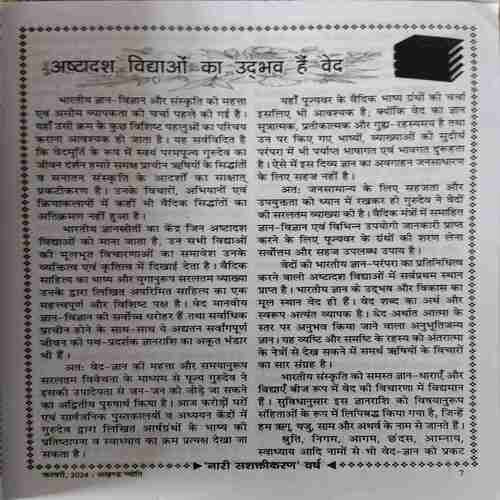 अष्टादश विद्याओं का उद्भव हैं वेद
भारतीय ज्ञान-विज्ञान और संस्कृति की महत्ता
एवं असीम व्यापकता की चर्चा पहले की गई है।
यहाँ उसी क्रम के कुछ विशिष्ट पहलुओं का परिचय
कराना आवश्यक हो जाता है। यह सर्वविदित है
कि वेदमूर्ति के रूप में स्वयं परमपूज्य गुरुदेव का
जीवन दर्शन हमारे समक्ष प्राचीन ऋषियों के सिद्धांतों
व सनातन संस्कृति के आदर्शों का साक्षात्
प्रकटीकरण है। उनके विचारों, अभियानों एवं
क्रियाकलापों में कहीं भी वैदिक सिद्धांतों का
अतिक्रमण नहीं हुआ है।
भारतीय ज्ञानस्रोतों का केंद्र जिन अष्टादश
विद्याओं को माना जाता है, उन सभी विद्याओं
की मूलभूत विचारणाओं का समावेश उनके
व्यक्तित्व एवं कृतित्व में दिखाई देता है। वैदिक
साहित्य का भाष्य और युगानुरूप सरलतम व्याख्या
उनके द्वारा लिखित अपरिमित साहित्य का एक
महत्त्वपूर्ण और विशिष्ट पक्ष है। वेद मानवीय
ज्ञान-विज्ञान की सर्वोच्च धरोहर हैं तथा सर्वाधिक
प्राचीन होने के साथ-साथ ये अद्यतन सर्वांगपूर्ण
जीवन की पथ-प्रदर्शक ज्ञानराशि का अकूत भंडार
भी हैं।
अतः वेद-ज्ञान की महत्ता और समयानुरूप
सरलतम विवेचना के माध्यम से पूज्य गुरुदेव ने
इसकी उपादेयता से जन-जन को जोड़े जा सकने
का अद्वितीय पुरुषार्थ किया है। आज करोड़ों घरों
एवं सार्वजनिक पुस्तकालयों व अध्ययन केंद्रों में
गुरुदेव द्वारा लिखित आर्षग्रंथों के भाष्य की
प्रतिष्ठापना व स्वाध्याय का क्रम प्रत्यक्ष देखा जा
सकता है।
यहाँ पूज्यवर के वैदिक भाष्य ग्रंथों की चर्चा
इसलिए भी आवश्यक है; क्योंकि वेद का ज्ञान
सूत्रात्मक, प्रतीकात्मक और गुह्य-रहस्यमय है तथा
उन पर किए गए भाष्यों, व्याख्याओं की सुदीर्घ
परंपरा में भी पर्याप्त भाषागत एवं भावगत दुरूहता
है। ऐसे में इस दिव्य ज्ञान का अवगाहन जनसाधारण
के लिए सहज नहीं है।
अतः जनसामान्य के लिए सहजता और
उपयुक्तता को ध्यान में रखकर ही गुरुदेव ने वेदों
की सरलतम व्याख्या की है। वैदिक मंत्रों में समाहित
ज्ञान-विज्ञान एवं विभिन्न उपयोगी जानकारी प्राप्त
करने के लिए पूज्यवर के ग्रंथों की शरण लेना
सर्वोत्तम और सहज उपलब्ध उपाय है।
वेदों की भारतीय ज्ञान-परंपरा का प्रतिनिधित्व
करने वाली अष्टादश विद्याओं में सर्वप्रथम स्थान
प्राप्त है। भारतीय ज्ञान के उद्भव और विकास का
मूल स्थान वेद ही हैं। वेद शब्द का अर्थ और
स्वरूप अत्यंत व्यापक है। वेद अर्थात आत्मा के
स्तर पर अनुभव किया जाने वाला अनुभूतिजन्य
ज्ञान। यह व्यष्टि और समष्टि के रहस्य को अंतरात्मा
के नेत्रों से देख सकने में समर्थ ऋषियों के विचारों
का सार संग्रह है।
भारतीय संस्कृति की समस्त ज्ञान-धाराएँ और
विद्याएँ बीज रूप में वेद की विचारणा में विद्यमान
हैं। सुविधानुसार इस ज्ञानराशि को विषयानुरूप
संहिताओं के रूप में लिपिबद्ध किया गया है, जिन्हें
हम ऋग्, यजु, साम और अथर्व के नाम से जानते हैं।
श्रुति, निगम, आगम, छंदस, आम्नाय,
स्वाध्याय आदि नामों से भी वेद-ज्ञान को प्रकट
'नारी सशक्तीकरण' वर्ष
फरवरी, 2024 : अखण्ड ज्योति
7